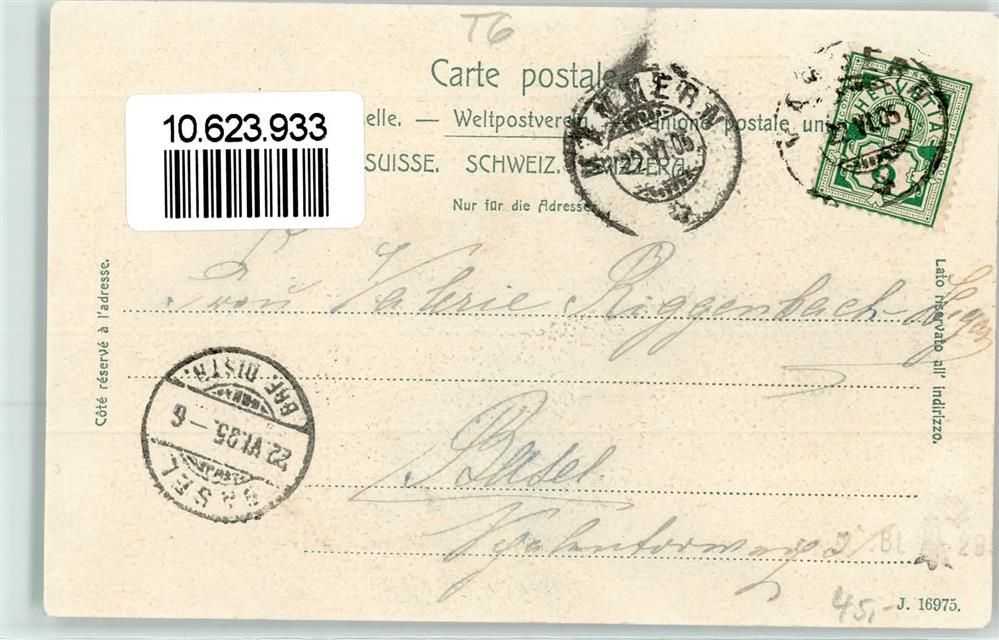 T6
Carte postale
10.623.933
elle. — Weltpostverein. Unione postale un
SUISSE. SCHWEIZ. SVIZZERA.
Nur für die Adresse
HELVETIA
22 VI 05
Côté réservé à l'adresse.
Lato riservato all' indirizzo.
Frau Valerie Riggenbach
BASEL
22.VI.05. – 6
BRF. DISTR.
Basel
45,-
J. 16975.